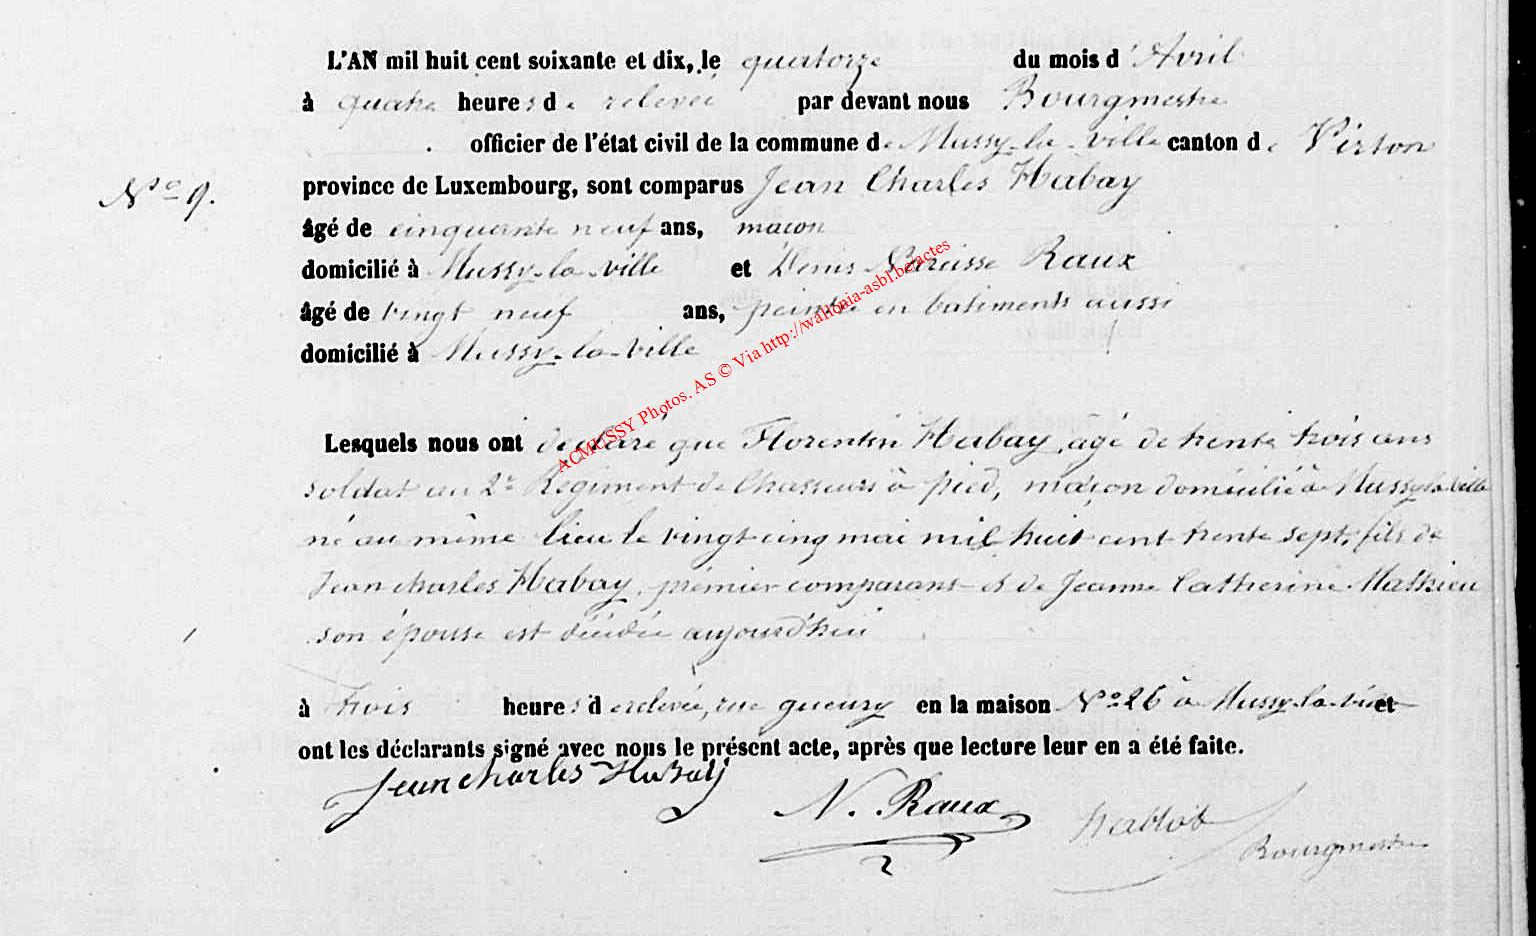 L'AN mil huit cent soixante et dix, le quatorze du mois d'Avril
à quatre heures de relevée par devant nous Bourgmestre
officier de l'état civil de la commune de Mussy-la-Ville canton de Virton
N° 9. province de Luxembourg, sont comparus Jean Charles Habay
âgé de cinquante neuf ans, maçon
domicilié à Mussy-la-Ville et Denis Narcisse Raux
âgé de vingt neuf ans, peintre en batiments aussi
domicilié à Mussy-la-Ville
ACMUSSY Photos. AS © Via http://wallonia-asbl.be/actes
Lesquels nous ont declaré que Florentin Habay, agé de trente trois ans
soldat au 2e Régiment de Chasseurs à pied, maçon domicilié à Mussy-la-Ville
né au même lieu le vingt cinq mai mil huit cent trente sept, fils de
Jean Charles Habay, prémier comparant et de Jeanne Catherine Mathieu
son épouse est décédé aujourd'hui
à trois heures de relevée, rue gueury en la maison N° 26 à Mussy-la-Ville et
ont les déclarants signé avec nous le présent acte, après que lecture leur en a été faite.
Jean charles Habay
N. Raux
Bourgmestre